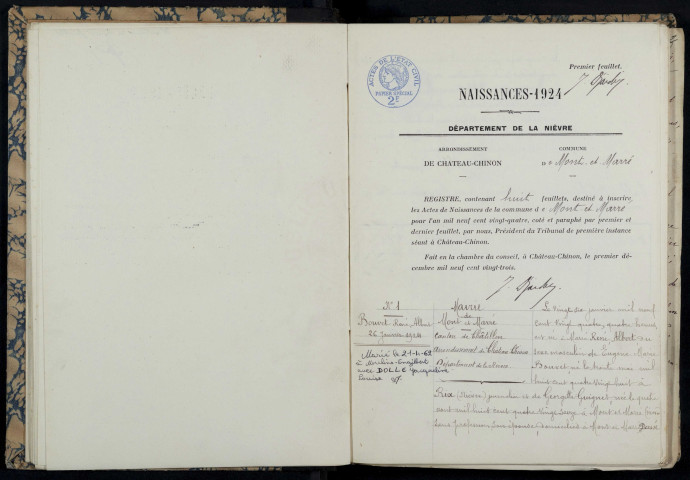 Premier feuillet.
ACTES DE L'ETAT CIVIL
PAPIER SPECIAL
2F
NAISSANCES-1924
DÉPARTEMENT DE LA NIÈVRE
ARRONDISSEMENT
DE CHATEAU-CHINON
COMMUNE
de Mont et Marré
REGISTRE, contenant huit feuillets, destiné à inscrire
les Actes de Naissances de la commune de Mont et Marré
pour l'an mil neuf cent vingt-quatre, coté et paraphé par premier et
dernier feuillet, par nous, Président du Tribunal de première instance
séant à Château-Chinon.
Fait en la chambre du conseil, à Château-Chinon, le premier dé-
cembre mil neuf cent vingt-trois.
N° 1
Bouvet René Albert
26 janvier 1924
Marié le 21-1-62
à Moulins-Engilbert
avec DOLLE Jacqueline
Louise
Mairie
de
Mont et Marré
Canton de Châtillon
Arrondissement de Château Chinon
Département de la Nièvre
Le vingt six janvier mil neuf
cent vingt quatre, quatre heures,
est né à Marré René Albert du
sexe masculin de Eugène Marie
Bouvet né le trente mai mil
huit cent quatre vingt huit à
Rix (Nièvre) journalier et de Georgette Guignot née le quatre
août mil huit cent quatre vingt seize à Mont et Marré
sans profession son épouse, domiciliés à Mont et Marré